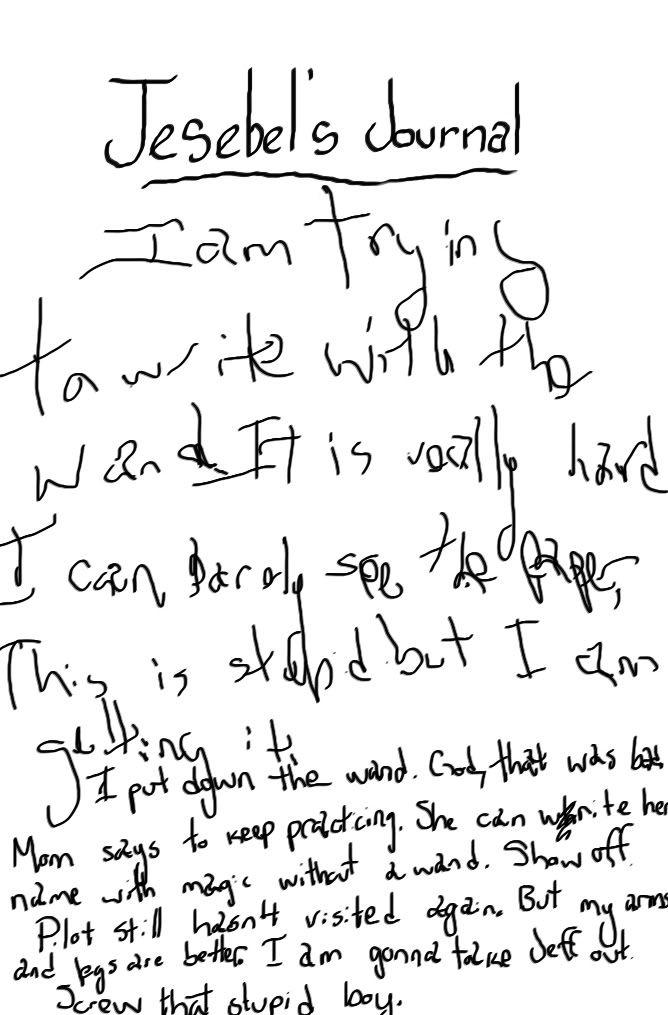 Jesebel's Journal
I am trying
to write with the
wand. It is really hard
I can barely see the paper,
This is stupid but I am
getting it.
I put down the wand. God, that was bad
Mom says to keep practicing. She can write her
name with magic without a wand. Show off.
Pilot still hasn't visited again. But my arms
and legs are better. I am gonna take Jeff out.
Screw that stupid boy.